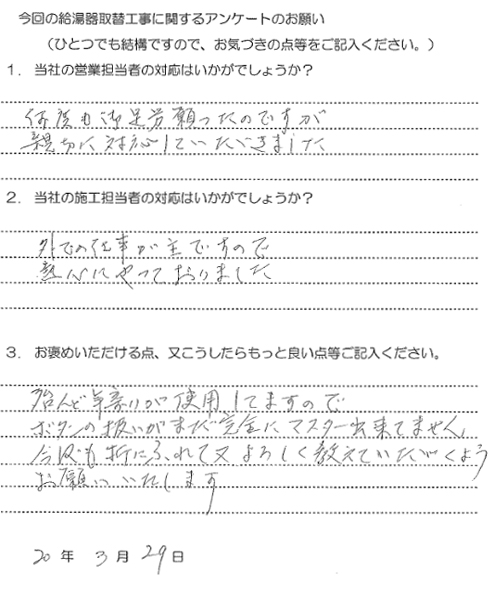 今回の給湯器取替工事に関するアンケートのお願い
（ひとつでも結構ですので、お気づきの点等をご記入ください。）
1． 当社の営業担当者の対応はいかがでしょうか？
何度も御足労願ったのですが
親切に対応していただきました
2． 当社の施工担当者の対応はいかがでしょうか？
外での仕事が主ですので
熱心にやっておりました
3． お褒めいただける点、又こうしたらもっと良い点等ご記入ください。
殆んど年寄りが使用してますので
ボタンの扱いがまだ完全にマスター出来てません
今後も折にふれて又よろしく教えていただくよう
お願いいたします
20 年 3 月 29 日